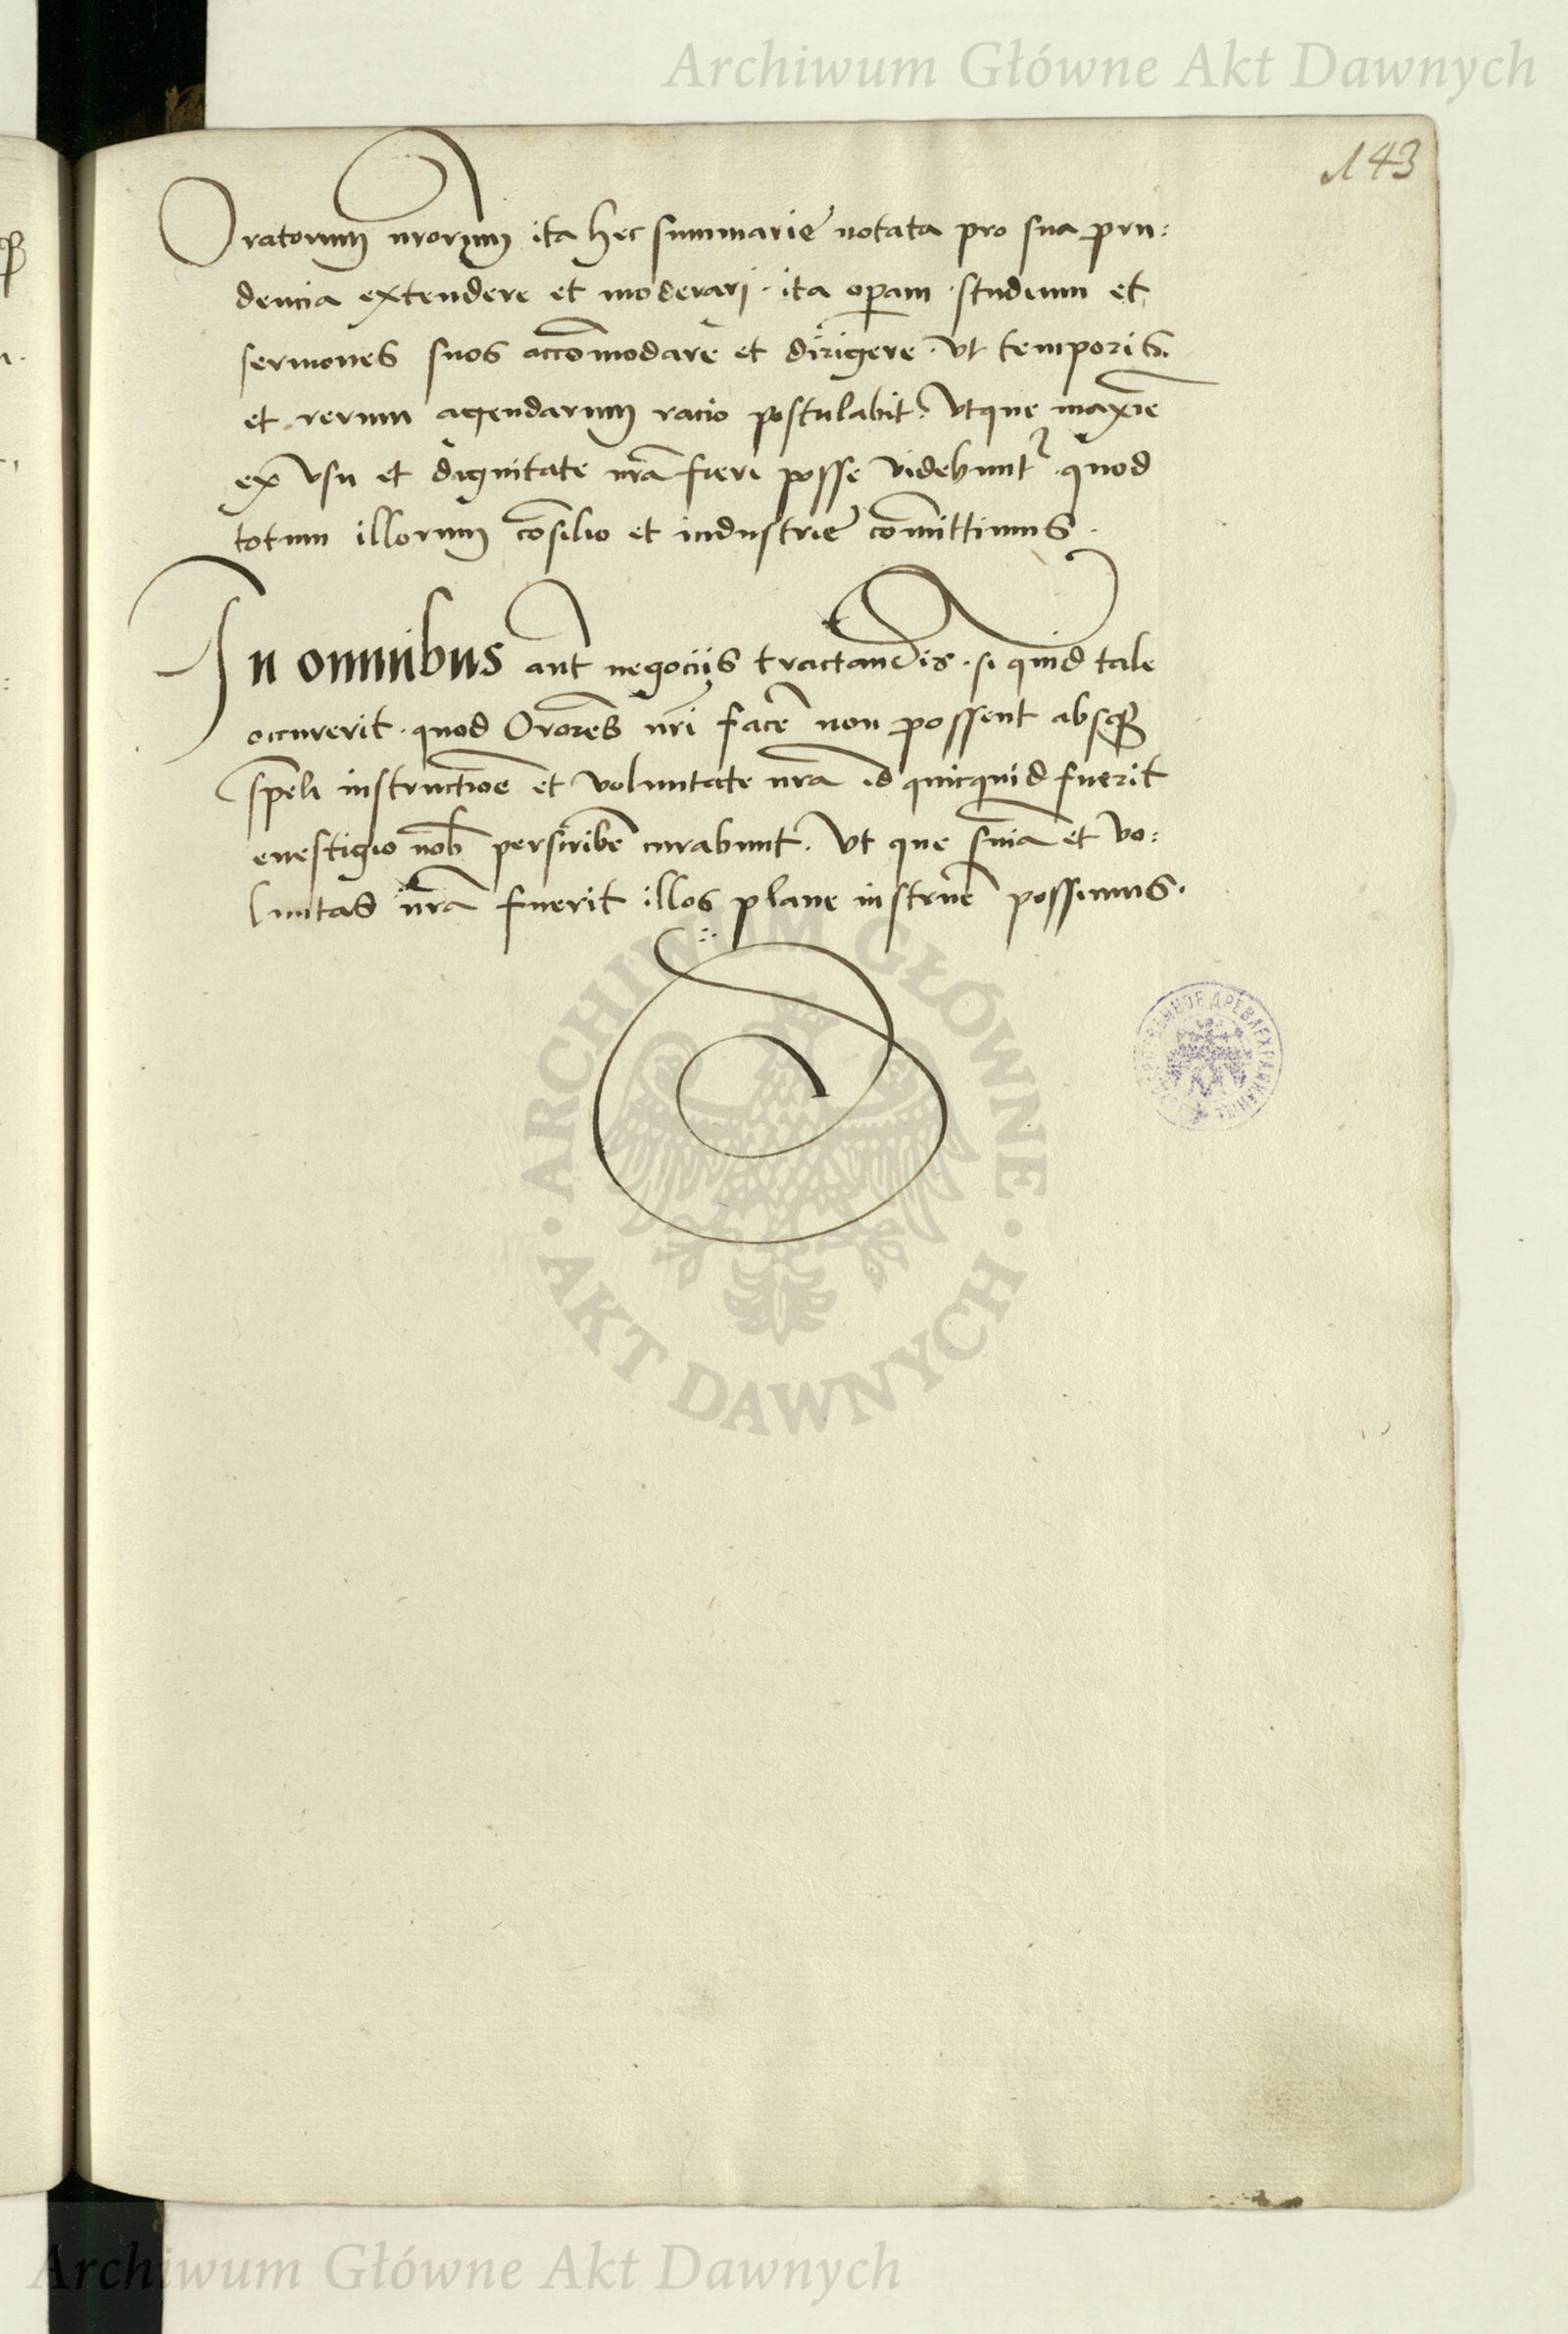 Archiwum Główne Akt Dawnych
143
Oratorum nrorum ita hec summarie notata pro sua pru:
dencia extendere et moderari. ita opam studium et
sermones suos accomodare et dirigere. Vt temporis
et rerum agendarum racio postulabit. Vtque maxie
ex vsu et dignitate nra fieri posse videbunt quod
totum illorum consilio et industrie comittimus.
In omnibus aut negocijs tractandis. si quid tale
occurerit. quod Orores nri face non possent absq
speli instructioe et voluntate nra id quicquid fuerit
euestigio nob perscribe curabunt. Vt que snia et vo:
luntas nra fuerit illos plane instrue possimus.
ARCHIWUM GŁÓWNE
AKT DAWNYCH
Archiwum Główne Akt Dawnych